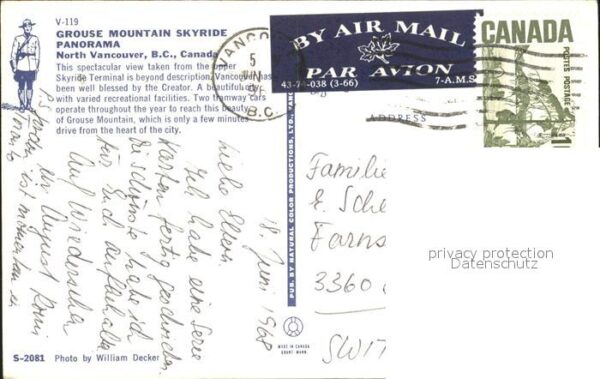 V-119
GROUSE MOUNTAIN SKYRIDE
PANORAMA
North Vancouver, B.C., Canada
This spectacular view taken from the upper
Skyride Terminal is beyond description. Vancouver has
been well blessed by the Creator. A beautiful city
with varied recreational facilities. Two tramway cars
operate throughout the year to reach this beauty
of Grouse Mountain, which is only a few minutes
drive from the heart of the city.
VANCOU
5
B.C.
BY AIR MAIL
PAR AVION
43-74-038 (3-66)
7-A.M.S
CANADA
POSTES POSTAGE
ADDRESS
18. Juni 1968
Liebe Eltern.
Ich habe eine Serie
Karten fertig geschrieben
die schönste habe ich
für Euch aufbehalten
Auf Wiedersehn
im August
PUB. BY NATURAL COLOR PRODUCTIONS, LTD., VAN
MADE IN CANADA
Familie
E. Sche
Farns
3360
SWIT
privacy protection
Datenschutz
S-2081 Photo by William Decker